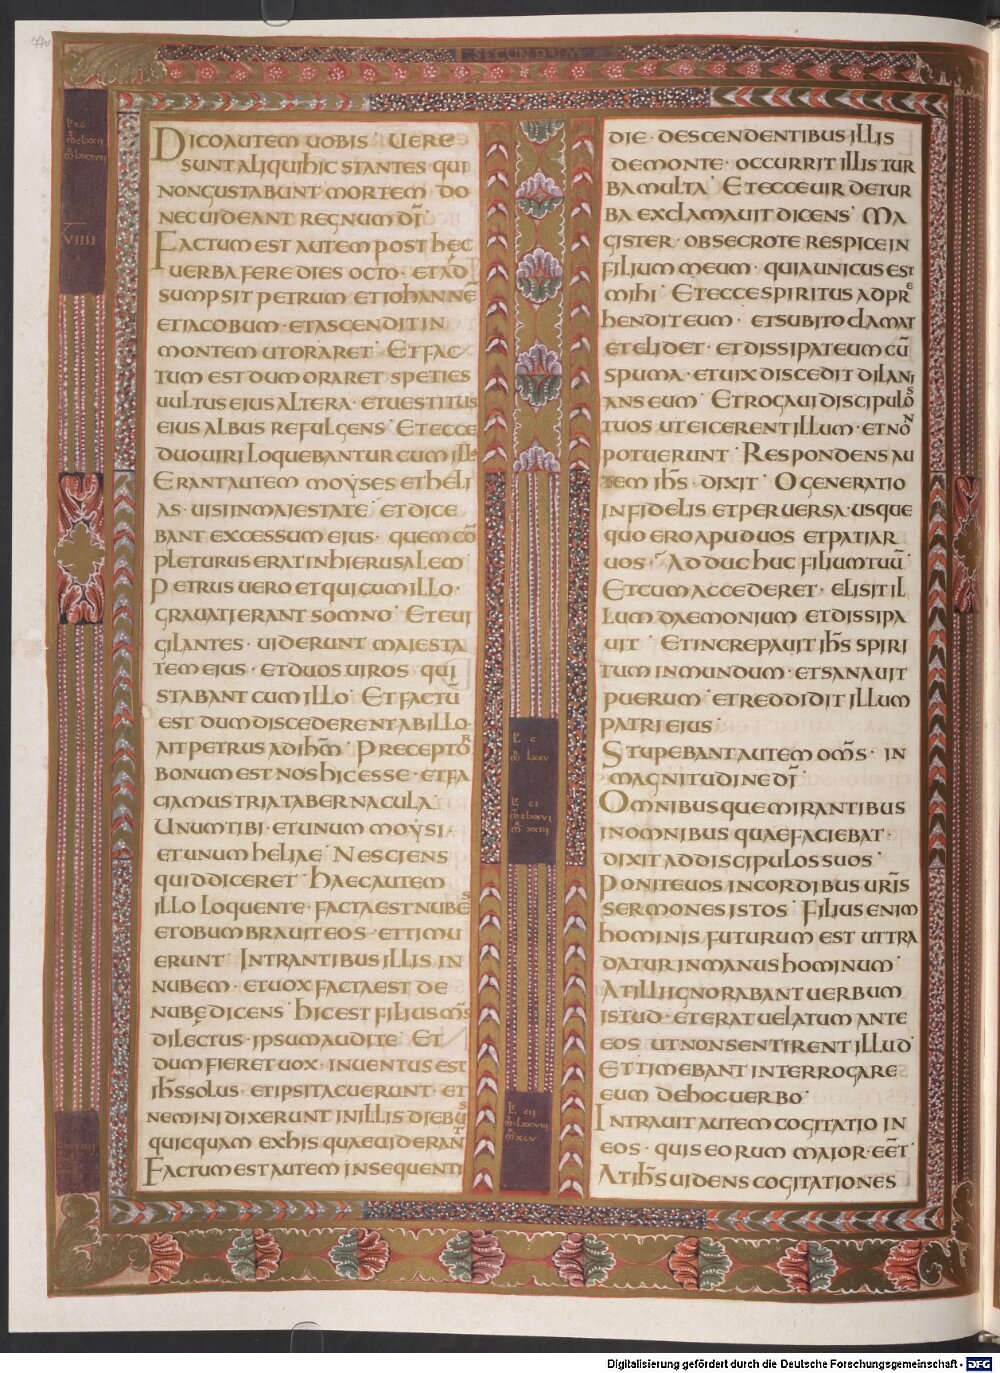 77v
SECUNDUM
DICOAUTEM UOBIS· UERE
SUNTALIQUIHIC STANTES QUI
NONGUSTABUNT MORTEM· DO
NECUIDEANT REGNUM DI̅·
FACTUM EST AUTEM POST HEC
UERBA FERE DIES OCTO· ETAD
SUMPSIT PETRUM ETIOHANNE̅
ETIACOBUM· ETASCENDIT IN
MONTEM UTORARET· ETFAC
TUM EST DUM ORARET SPETIES
UULTUS EIUS ALTERA· ETUESTITUS
EIUS ALBUS REFULGENS· ETECCE
DUOUIRI LOQUEBANTUR CUM ILL̅
ERANTAUTEM MOYSES ETHELI
AS· UISIINMAIESTATE· ETDICE
BANT EXCESSUM EIUS· QUEM CO̅
PLETURUS ERATINHIERUSALEM·
PETRUS UERO ETQUICUM ILLO·
GRAUATIERANT SOMNO· ETEUI
GILANTES· UIDERUNT MAIESTA
TEM EIUS· ETDUOS UIROS QUI
STABANT CUM ILLO· ETFACTU̅
EST DUM DISCEDERENT AB ILLO·
AIT PETRUS ADIHM̅· PRECEPTOR
BONUM EST NOS HIC ESSE· ETFA
CIAMUS TRIA TABERNACULA·
UNUM TIBI· ETUNUM MOYSI·
ETUNUM HELIAE· NESCIENS
QUID DICERET· HAECAUTEM
ILLO LOQUENTE· FACTA EST NUBES
ETOBUMBRAUIT EOS· ETTIMU
ERUNT· INTRANTIBUS ILLIS IN
NUBEM· ETUOX FACTA EST DE
NUBE DICENS· HIC EST FILIUS MS̅
DILECTUS· IPSUM AUDITE· ET
DUM FIERET UOX· INUENTUS EST
IHS̅ SOLUS· ETIPSI TACUERUNT· ET
NEMINI DIXERUNT INILLIS DIEBUS
QUICQUAM EXHIS QUAE UIDERANT
FACTUM EST AUTEM INSEQUENTI
DIE· DESCENDENTIBUS ILLIS
DEMONTE· OCCURRIT ILLIS TUR
BA MULTA· ETECCE UIR DE TUR
BA EXCLAMAUIT DICENS· MA
GISTER· OBSECRO TE RESPICE IN
FILIUM MEUM· QUIA UNICUS EST
MIHI· ETECCE SPIRITUS ADPRE
HENDIT EUM· ETSUBITO CLAMAT
ETELIDET· ETDISSIPAT EUM CU̅
SPUMA· ETUIX DISCEDIT DILANI
ANS EUM· ETROGAUI DISCIPULOS
TUOS UTEICERENT ILLUM· ETNON
POTUERUNT· RESPONDENS AU
TEM IHS̅· DIXIT· O GENERATIO
INFIDELIS ETPERUERSA· USQUE
QUO ERO APUD UOS ETPATIAR
UOS· ADDUC HUC FILIUM TUU̅·
ETCUM ACCEDERET· ELISIT IL
LUM DAEMONIUM ETDISSIPA
UIT· ETINCREPAUIT IHS̅ SPIRI
TUM INMUNDUM· ETSANAUIT
PUERUM· ETREDDIDIT ILLUM
PATRI EIUS·
STUPEBANT AUTEM OMS̅· IN
MAGNITUDINE DI̅·
OMNIBUSQUE MIRANTIBUS
INOMNIBUS QUAE FACIEBAT·
DIXIT AD DISCIPULOS SUOS·
PONITE UOS INCORDIBUS URIS̅
SERMONES ISTOS· FILIUS ENIM
HOMINIS FUTURUM EST UTTRA
DATUR INMANUS HOMINUM·
ATILLI IGNORABANT UERBUM
ISTUD· ETERAT UELATUM ANTE
EOS UTNON SENTIRENT ILLUD·
ETTIMEBANT INTERROGARE
EUM DEHOC UERBO·
INTRAUIT AUTEM COGITATIO IN
EOS· QUIS EORUM MAIOR· EE̅T·
ATIHS̅ UIDENS COGITATIONES
VIIII
Digitalisierung gefördert durch die Deutsche Forschungsgemeinschaft - DFG